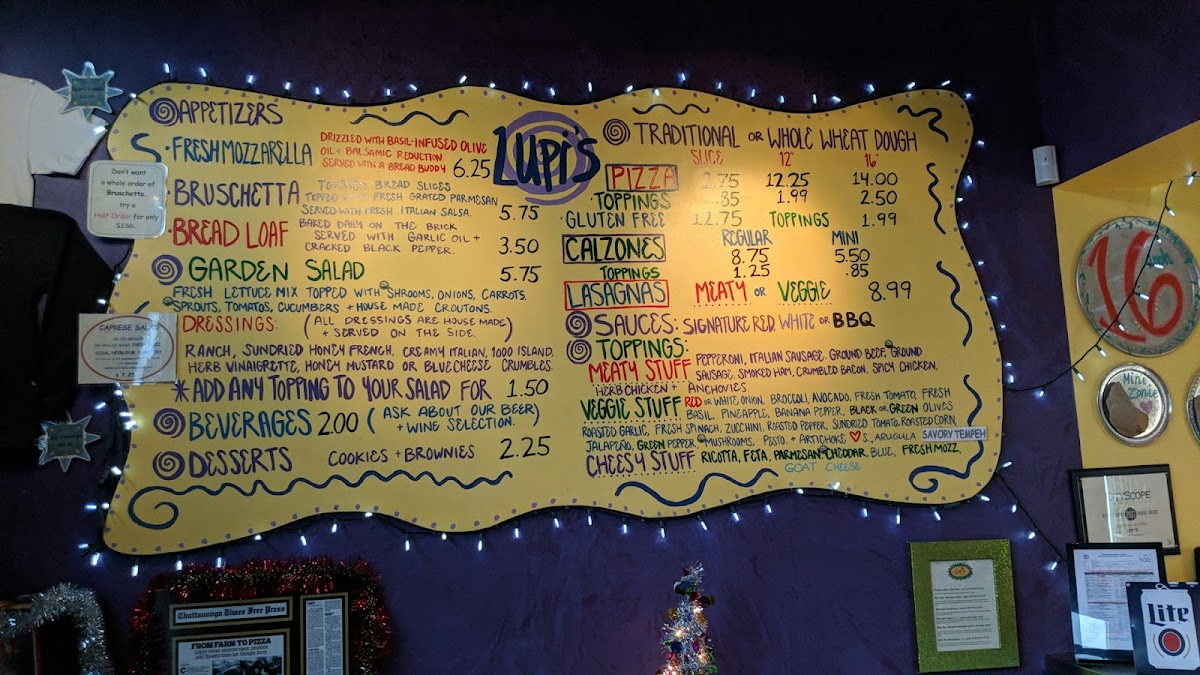 APPETIZERS
FRESH MOZZARELLA
DRIZZLED WITH BASIL-INFUSED OLIVE
OIL + BALSAMIC REDUCTION.
SERVED WITH A BREAD BUDDY 6.25
BRUSCHETTA
TOASTED BREAD SLICES
TOPPED WITH FRESH GRATED PARMESAN
SERVED WITH FRESH ITALIAN SALSA. 5.75
BREAD LOAF
BAKED DAILY ON THE BRICK
SERVED WITH GARLIC OIL +
CRACKED BLACK PEPPER. 3.50
GARDEN SALAD 5.75
FRESH LETTUCE MIX TOPPED WITH SHROOMS, ONIONS, CARROTS,
SPROUTS, TOMATOS, CUCUMBERS + HOUSE MADE CROUTONS.
DRESSINGS: (ALL DRESSINGS ARE HOUSE MADE
+ SERVED ON THE SIDE.)
RANCH, SUNDRIED HONEY FRENCH, CREAMY ITALIAN, 1000 ISLAND,
HERB VINAIGRETTE, HONEY MUSTARD OR BLUE CHEESE CRUMBLES.
*ADD ANY TOPPING TO YOUR SALAD FOR 1.50
BEVERAGES 2.00 (ASK ABOUT OUR BEER
+ WINE SELECTION.)
DESSERTS COOKIES + BROWNIES 2.25
LUPI'S
TRADITIONAL OR WHOLE WHEAT DOUGH
SLICE 12" 16"
PIZZA 2.75 12.25 14.00
TOPPINGS .85 1.99 2.50
GLUTEN FREE 12.75 TOPPINGS 1.99
REGULAR MINI
CALZONES 8.75 5.50
TOPPINGS 1.25 .85
LASAGNAS MEATY OR VEGGIE 8.99
SAUCES: SIGNATURE RED, WHITE OR BBQ
TOPPINGS:
MEATY STUFF PEPPERONI, ITALIAN SAUSAGE, GROUND BEEF, GROUND
SAUSAGE, SMOKED HAM, CRUMBLED BACON, SPICY CHICKEN,
HERB CHICKEN + ANCHOVIES
VEGGIE STUFF RED OR WHITE ONION, BROCCOLI, AVOCADO, FRESH TOMATO, FRESH
BASIL, PINEAPPLE, BANANA PEPPER, BLACK OR GREEN OLIVES
ROASTED GARLIC, FRESH SPINACH, ZUCCHINI, ROASTED PEPPER, SUNDRIED TOMATO, ROASTED CORN,
JALAPEÑO, GREEN PEPPER, MUSHROOMS, PESTO, + ARTICHOKE ♥'S, ARUGULA SAVORY TEMPEH
CHEESY STUFF RICOTTA, FETA, PARMESAN, CHEDDAR, BLUE, FRESH MOZZ
GOAT CHEESE
Don't want
a whole order of
Bruschetta...
try a
Half Order for only
$3.50.
CAPRESE SALAD
LOCAL HEIRLOOM
16 inch
Mini
Zone
CITYSCOPE
100
Lite
Chattanooga Times Free Press
FROM FARM TO PIZZA